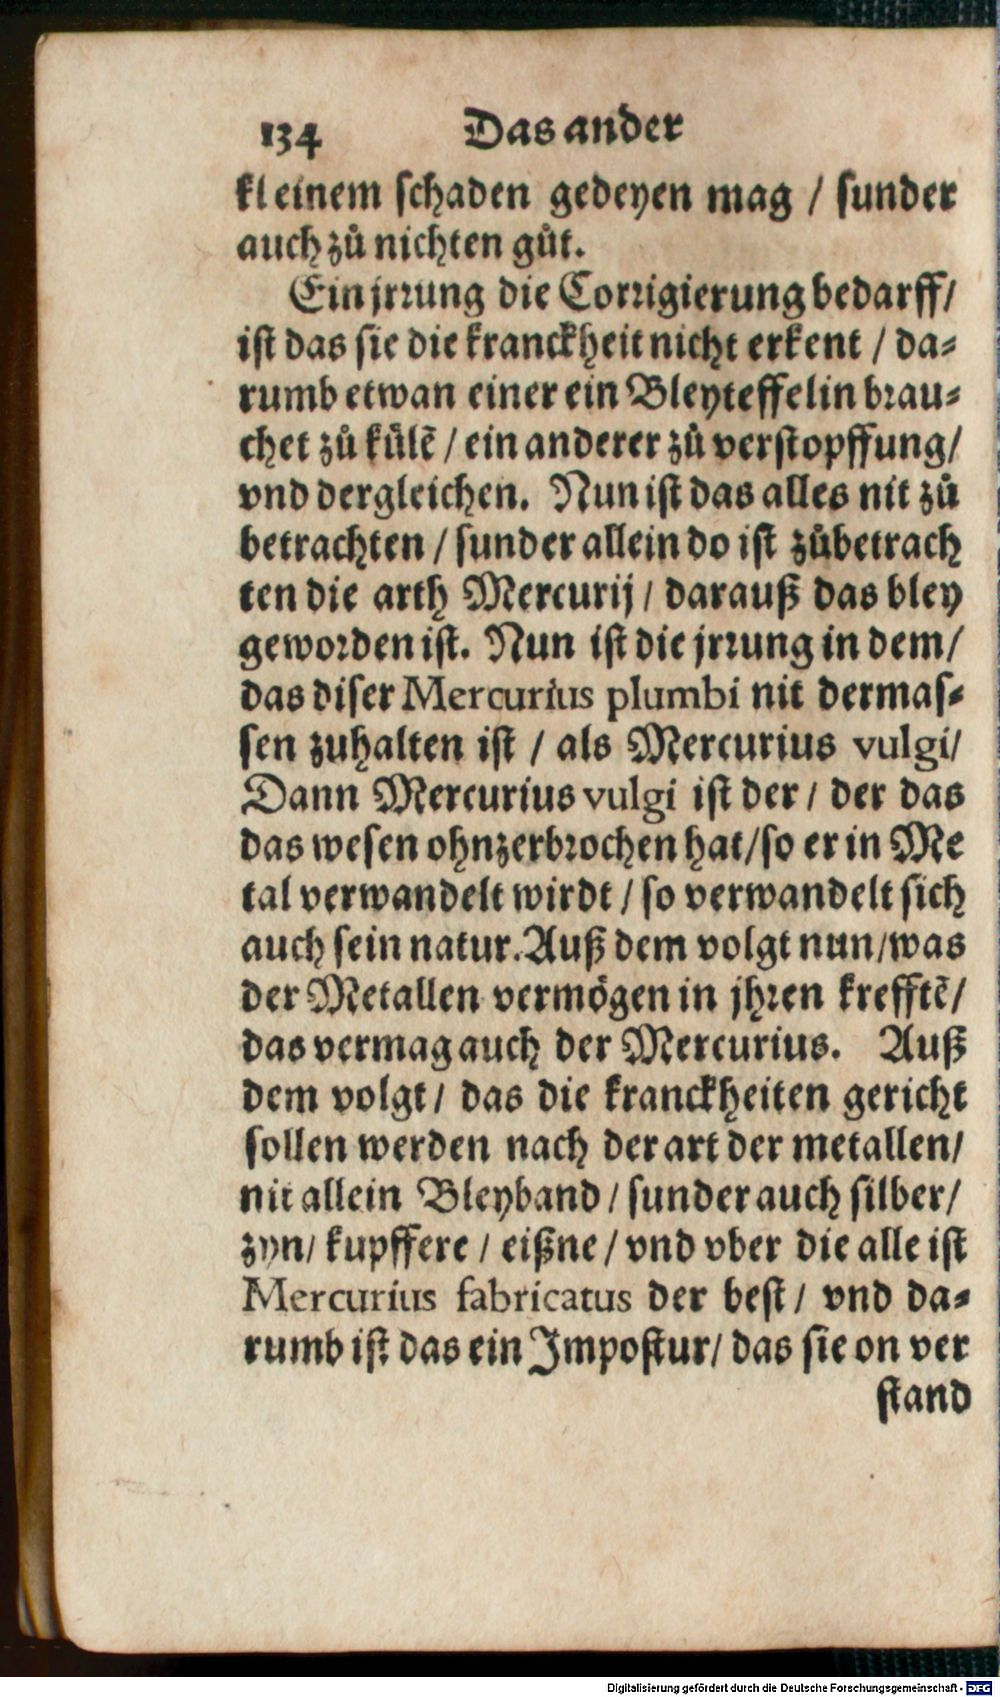 134 Das ander
kleinem schaden gedeyen mag / sunder
auch zů nichten gůt.
Ein jrrung die Corrigierung bedarff/
ist das sie die kranckheit nicht erkent / da⸗
rumb etwan einer ein Bleyteffelin brau⸗
chet zů külē / ein anderer zů verstopffung/
vnd dergleichen. Nun ist das alles nit zů
betrachten / sunder allein do ist zůbetrach
ten die arth Mercurij / darauß das bley
geworden ist. Nun ist die jrrung in dem/
das diser Mercurius plumbi nit dermas⸗
sen zuhalten ist / als Mercurius vulgi/
Dann Mercurius vulgi ist der / der das
das wesen ohnzerbrochen hat/so er in Me
tal verwandelt wirdt / so verwandelt sich
auch sein natur. Auß dem volgt nun/was
der Metallen vermögen in jhren krefftē/
das vermag auch der Mercurius. Auß
dem volgt / das die kranckheiten gericht
sollen werden nach der art der metallen/
nit allein Bleyband / sunder auch silber/
zyn/ kupffere / eißne / vnd vber die alle ist
Mercurius fabricatus der best / vnd da⸗
rumb ist das ein Impostur/ das sie on ver
stand
Digitalisierung gefördert durch die Deutsche Forschungsgemeinschaft - DFG